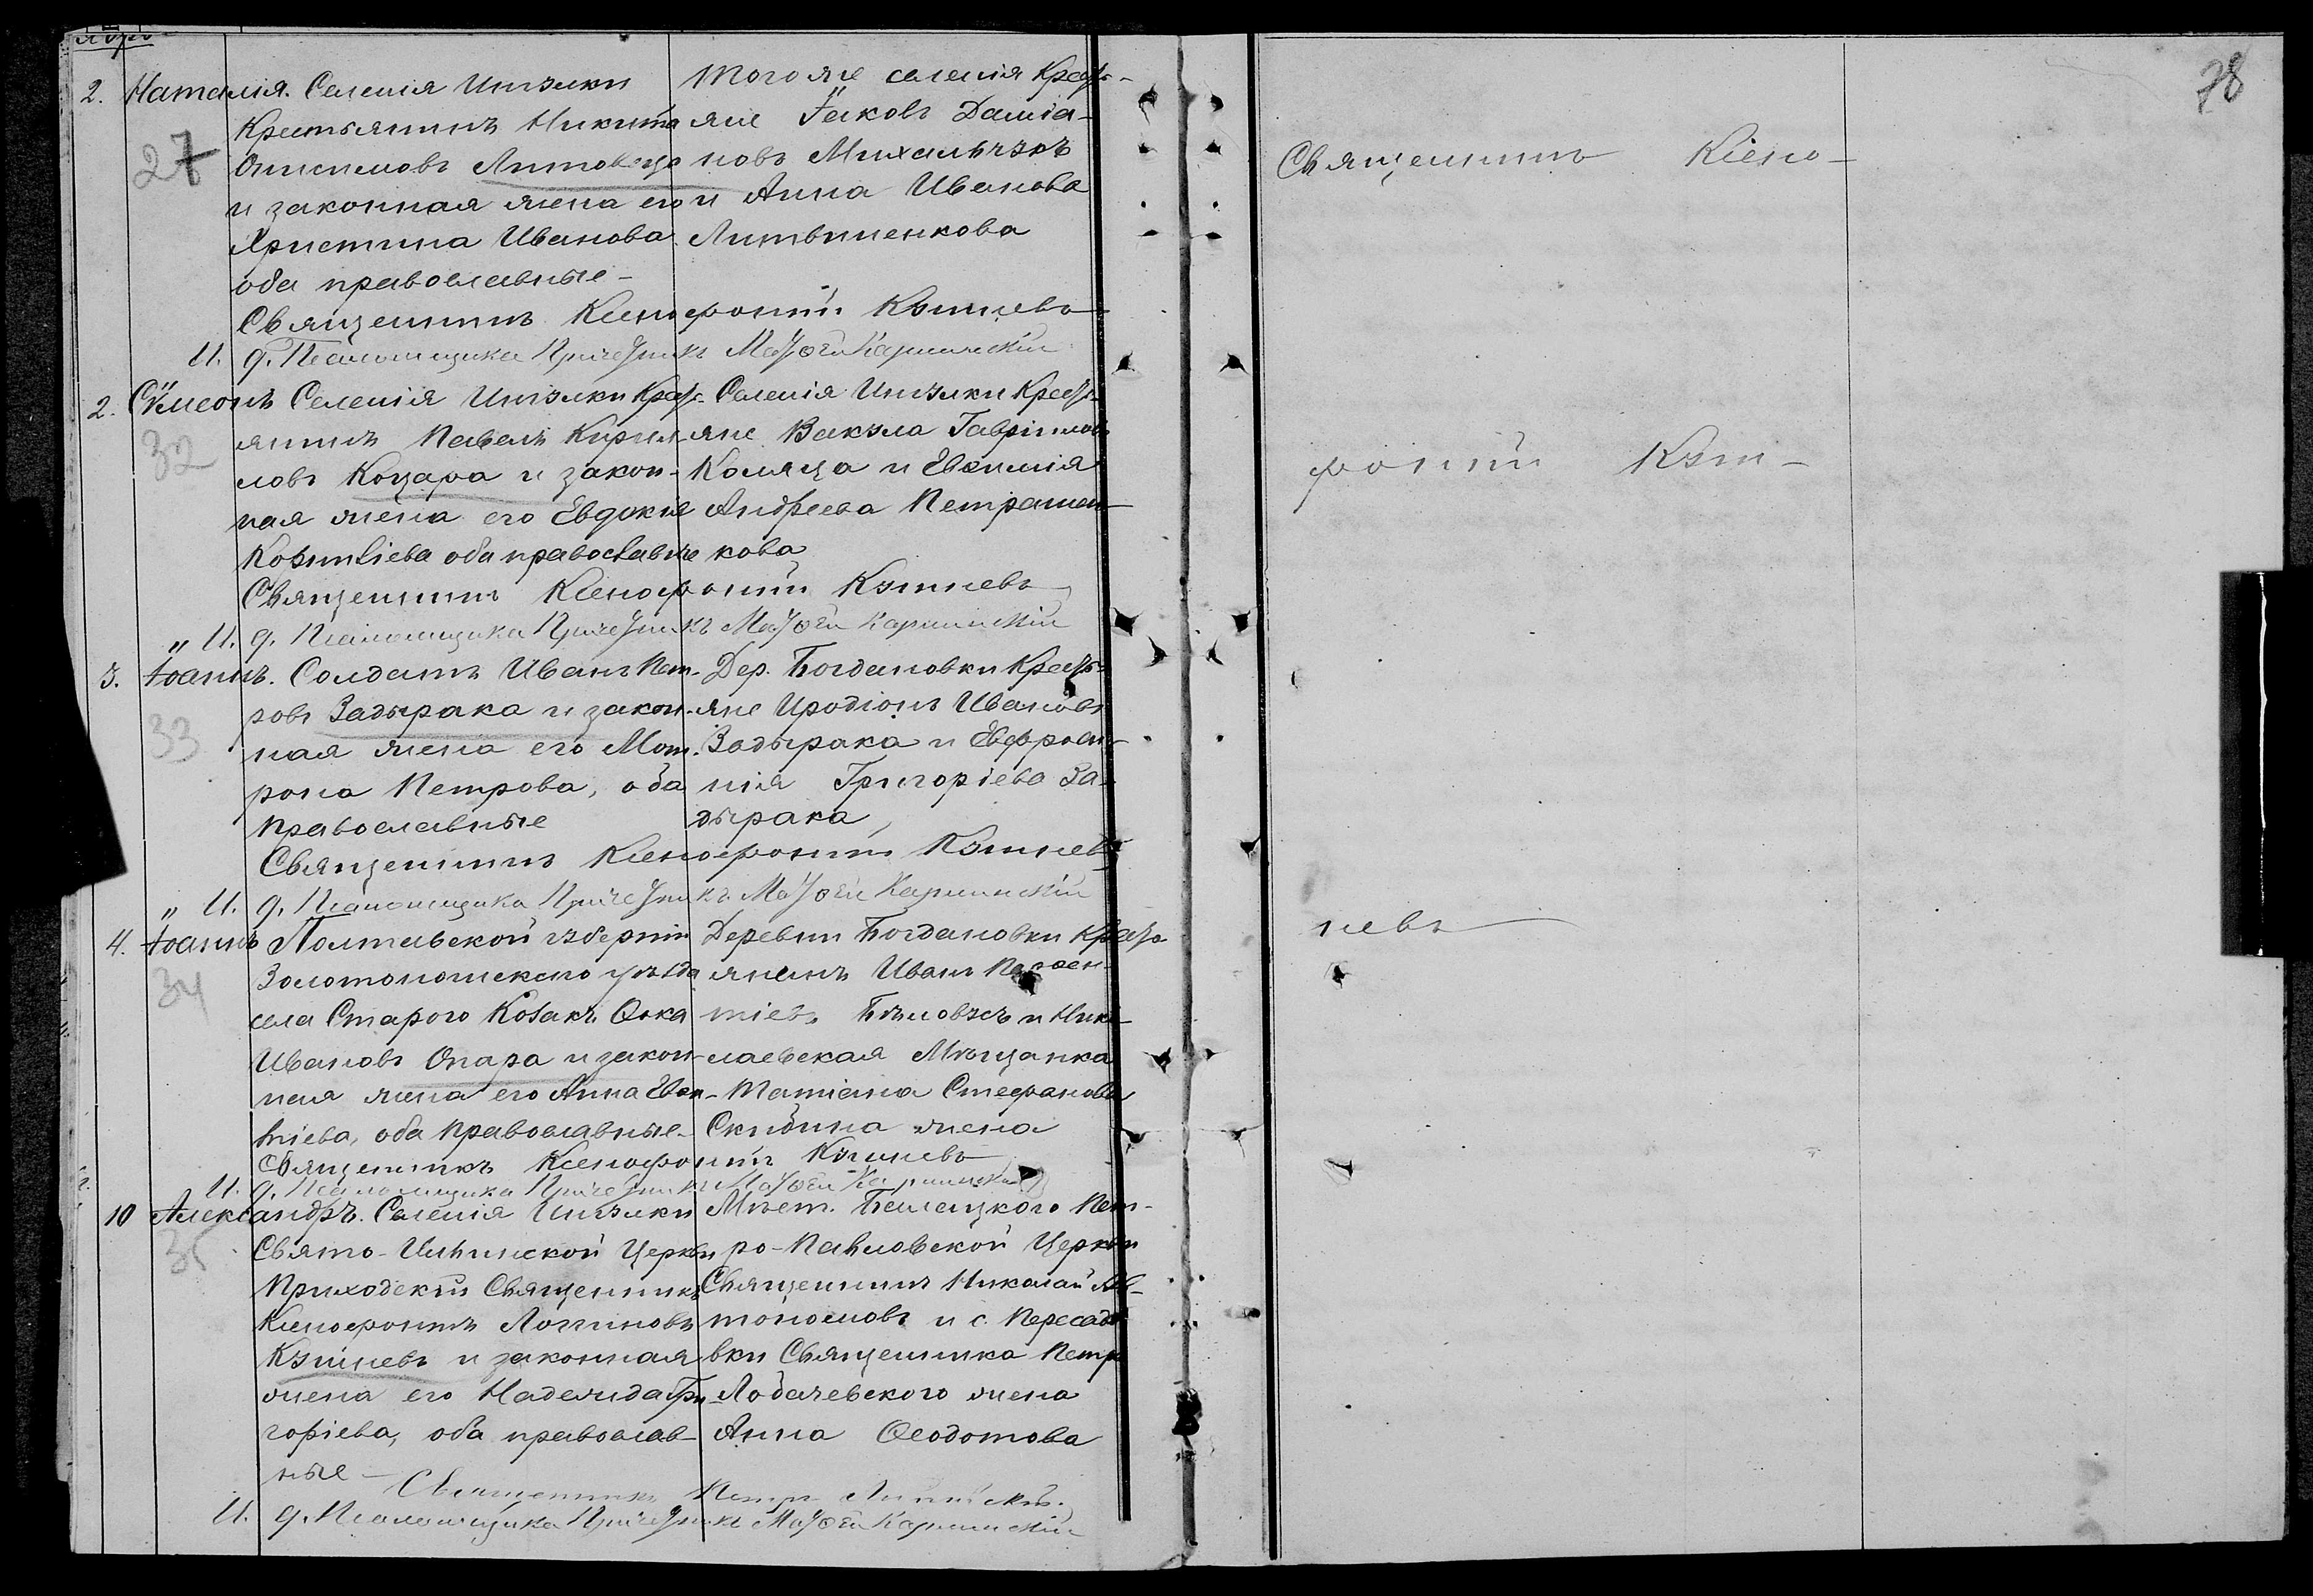 2. Наталія. Селенія Ингулки
Крестьянинъ Никита
27
Онисимовъ Литовецъ
и законная жена его
Христина Иванова
оба православные –
Того же селенія Кресть-
яне Іаковъ Даміа-
новъ Михальчукъ
и Анна Иванова
Литвиненкова
Священникъ Ксенофонтъ Кутневъ
И. д. Псаломщика Причетникъ Матѳей Каршинскій
2. Сѵмеонъ Селенія Ингулки Кресть-
32
янинъ Павелъ Кирил-
ловъ Коцара и закон-
ная жена его Евдокія
оба православные
Селенія Ингулки Кресть-
яне Вакула Гавріиловъ
Коляца и Евѳимія
Андреева Петрашен-
кова
Священникъ Ксенофонтъ Кутневъ
„ И. д. Псаломщика Причетникъ Матѳей Каршинскій
3. Іоаннъ. Солдатъ Иванъ Пет-
33
ровъ Задырака и закон-
ная жена его Мат-
рона Петрова, оба
православные
Дер. Богдановки Кресть-
яне Иродіонъ Ивановъ
Задырака и Евфроси-
нія Григоріева За-
дырака
Священникъ Ксенофонтъ Кутневъ
„ И. д. Псаломщика Причетникъ Матѳей Каршинскій
4. Іоаннъ Полтавской губерніи
34
Золотоношскаго уѣзда
села Старого Козакъ Ѳока
Ивановъ Опара и закон-
ная жена его Анна
оба православные –
Деревни Богдановки Кресть-
янинъ Иванъ
Бѣловусъ и Нико-
лаевская Мѣщанка
Татіана Стефанова
жена
Священникъ Ксенофонтъ Кутневъ
И. д. Псаломщика Причетникъ Матѳей Каршинскій
10 Александръ. Селенія Ингулки
35
Свято-Ильинской Церкви
Приходскій Священникъ
Ксенофонтъ Логгиновъ
Кутневъ и законная
жена его Надежда Гри-
горіева, оба православ-
ные –
Мѣст. Пет-
ро-Павловской Церкви
Священникъ Николай Ав-
тономовъ и с. Пересадо-
вки Священника Петра
Лобачевского жена
Анна Ѳеодотова
Священникъ Петръ
И. д. Псаломщика Причетникъ Матѳей Каршинскій
78
Священникъ Ксено-
фонтъ Кут-
невъ